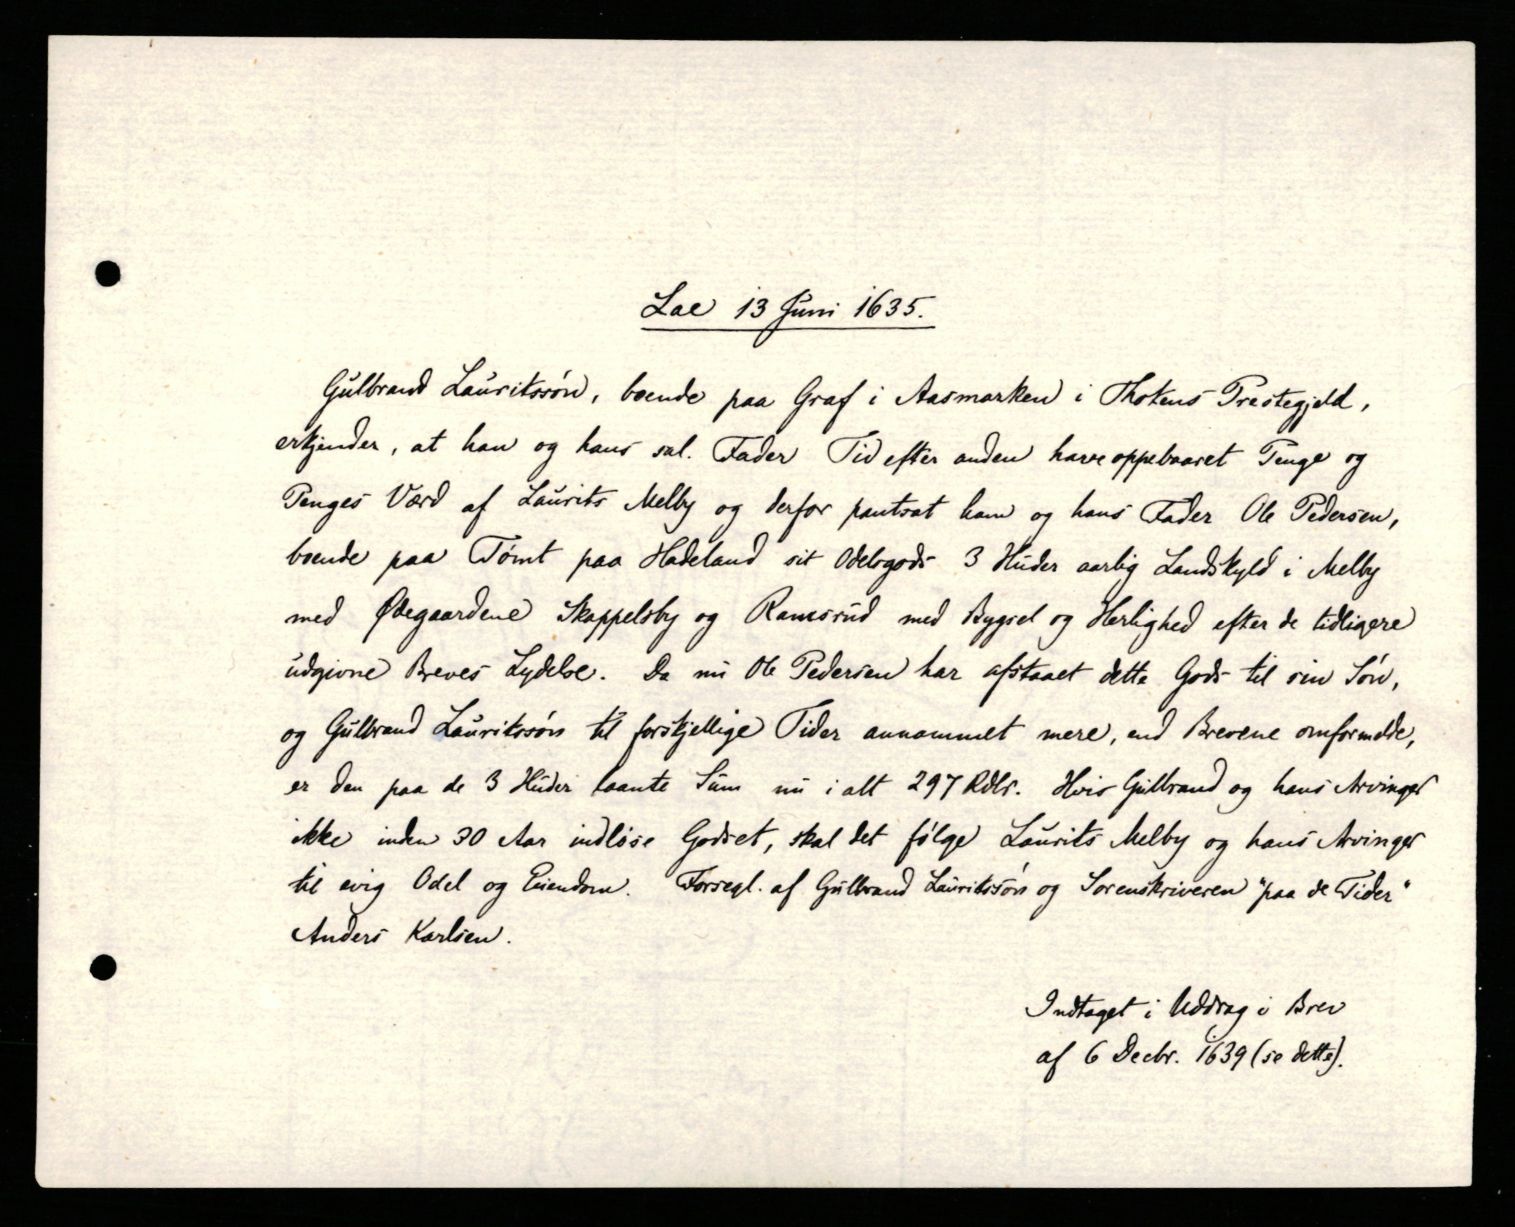 Lae 13 Juni 1635.
Gulbrand Lauritssön, boende paa Graf i Aasmarken i Thotens Prestegjeld,
erkjender, at han og hans sal. Fader Tid efter anden have oppebaaret Penge og
Penges Værd af Laurits Melby og derfor pantsat ham og hans Fader Ole Pedersen,
boende paa Tömt paa Hadeland sit Odelsgods 3 Huder aarlig Landskyld i Melby
med Ødegaardene Skappelsby og Ramsrud med Bygsel og Herlighed efter de tidligere
udgivne Breves Lydelse. Da nu Ole Pedersen har afstaaet dette Gods til sin Sön,
og Gulbrand Lauritssön til forskjellige Tider annammet mere, end Brevene omformelde,
er den paa de 3 Huder laante Sum nu i alt 297 Rdlr. Hvis Gulbrand og hans Arvinger
ikke inden 30 Aar indlöse Godset, skal det fölge Laurits Melby og hans Arvinger
til evig Odel og Eiendom. Forsegl. af Gulbrand Lauritssön og Sorenskriveren "paa de Tider"
Anders Karlsen.
Indtaget i Uddrag i Brev
af 6 Decbr. 1639 (se dette).